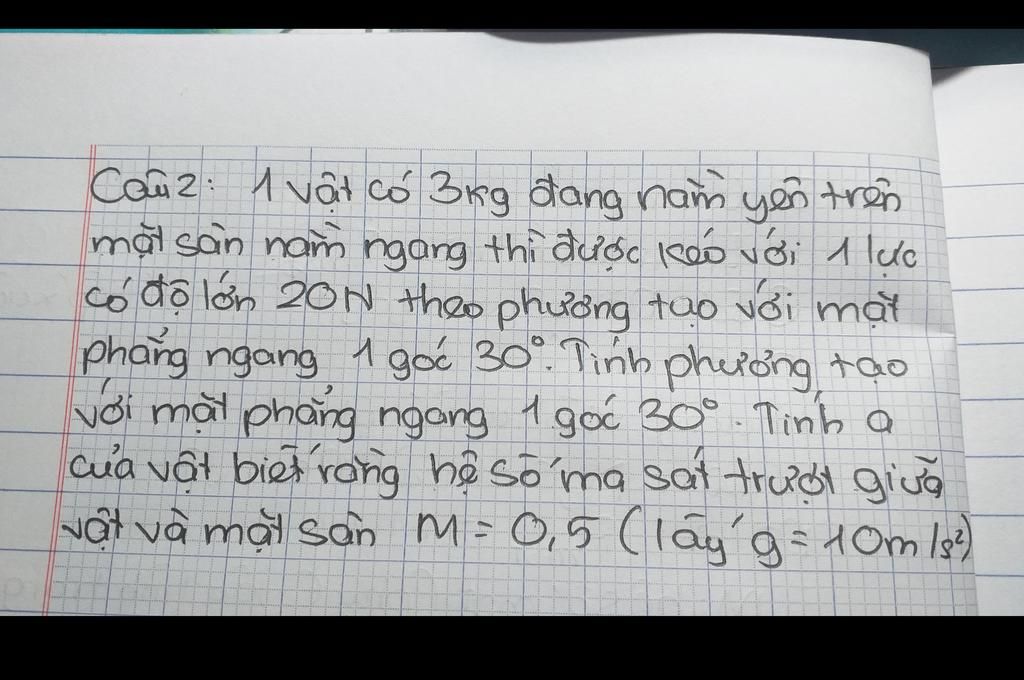 Câu 2: 1 vật có 3kg đang nằm yên trên
mặt sàn nằm ngang thì được kéo với 1 lực
có độ lớn 20N theo phương tạo với mặt
phẳng ngang 1 góc 30°. Tính phương tạo
với mặt phẳng ngang 1 góc 30°. Tính a
của vật biết rằng hệ số ma sát trượt giữa
vật và mặt sàn M = 0,5 (lấy g = 10m/s²)